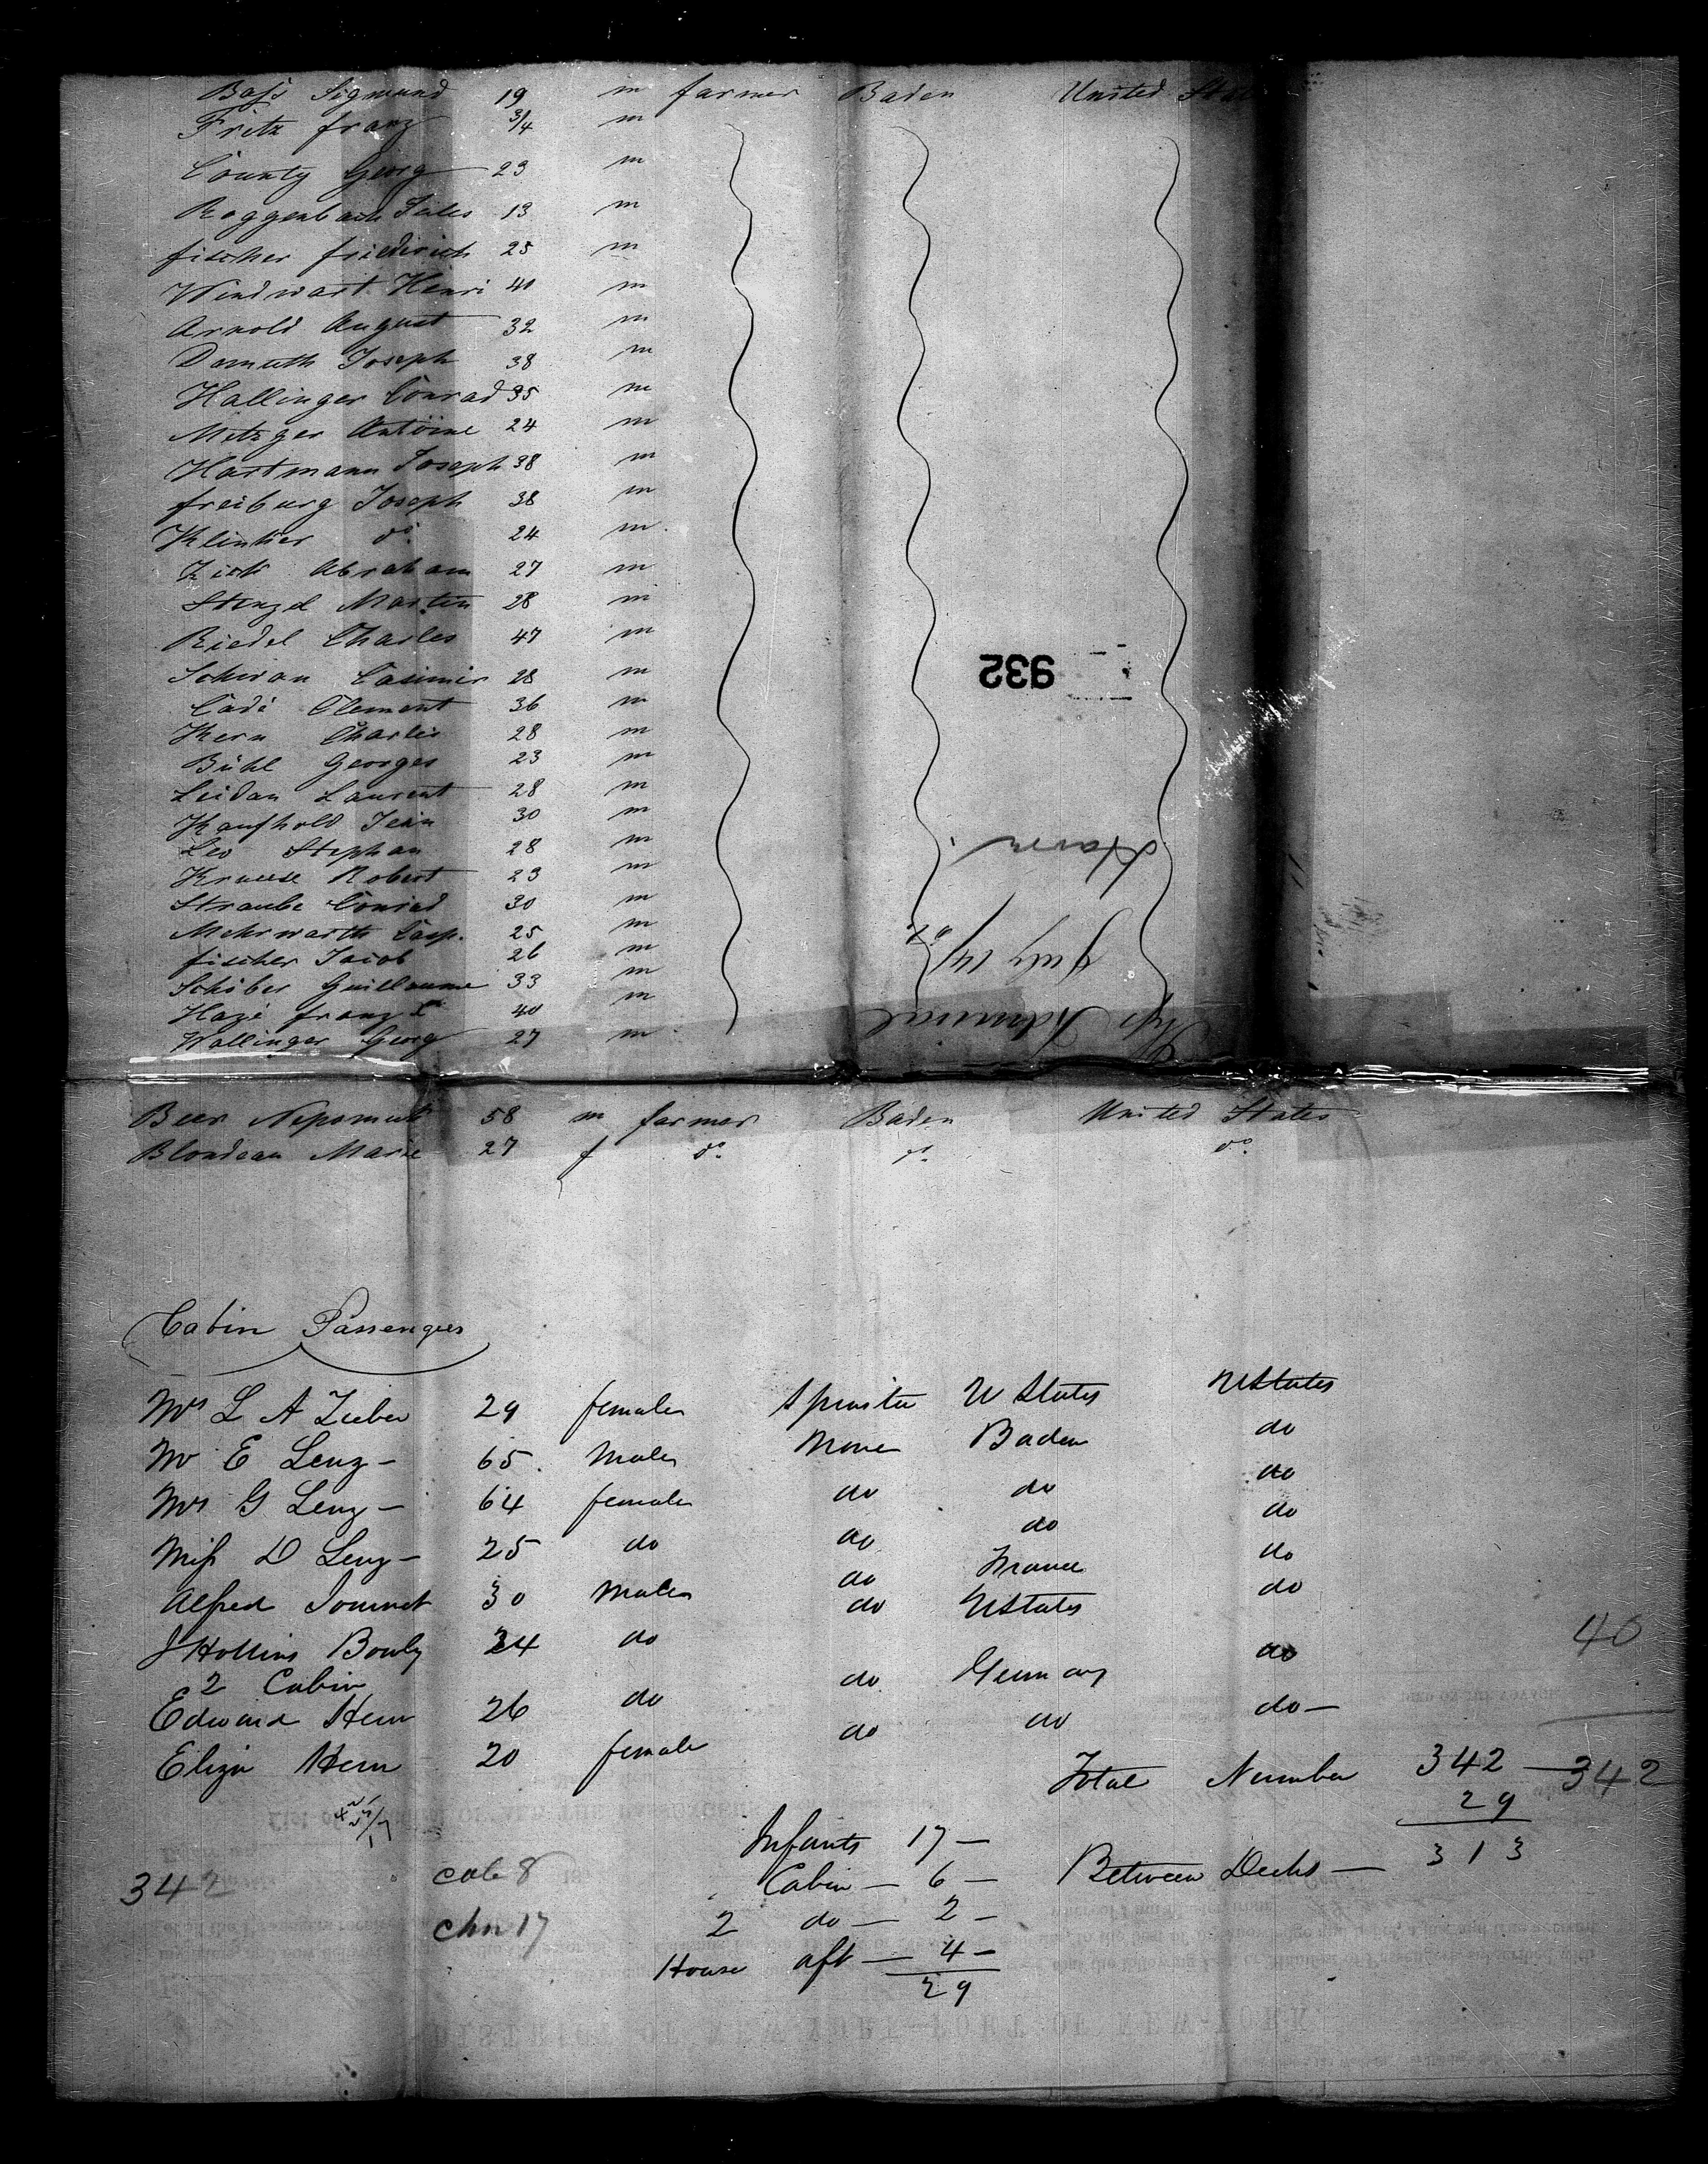 Bass Sigmund 19 m farmer Baden United Stat
Fritz franz 3/4 m
County Georg 23 m
Roggenbach Jules 13 m
fischer friedrich 25 m
Windwart Henri 40 m
Arnold August 32 m
Damuth Joseph 38 m
Hallinger Conrad 35 m
Metzger Antoine 24 m
Hartmann Joseph 38 m
freiburg Joseph 38 m
Klinker do. 24 m
Abraham 27 m
Stenzel Martin 28 m
Riedel Charles 47 m
Schwan Casimir 28 m
Cadé Clement 36 m
Kern Charles 28 m
Bühl Georges 23 m
Leidan Laurent 28 m
Kaufhold Jean 30 m
Leo Stephan 28 m
Krause Robert 23 m
Straube Conrad 30 m
Mehrwarth Casp. 25 m
fischer Jacob 26 m
Schiber Guillaume 33 m
Hazé franz 40 m
Wallinger Georg 27 m
932
Ship Admiral
July 14/
Havre
Beer Nepomuk 58 m farmer Baden United States
Blondeau Marie 27 f do. do. do.
Cabin Passengers
Mrs L A Zieber 29 female Spinster U States U States
Mr E Lenz - 65 Male None Baden do
Mrs G Lenz - 64 female do do do
Miss D Lenz - 25 do do do do
Alfred 30 Male do France do
J Hollins Bowly 24 do do U States do
2 Cabin
Edward Hern 26 do do Germany do
Eliza Hern 20 female do do do -
40
Total Number 342 - 342
29
Infants 17 -
Between Decks - 313
Cabin - 6 -
2 do - 2 -
House aft - 4 -
29
342
cab 8
chn 17